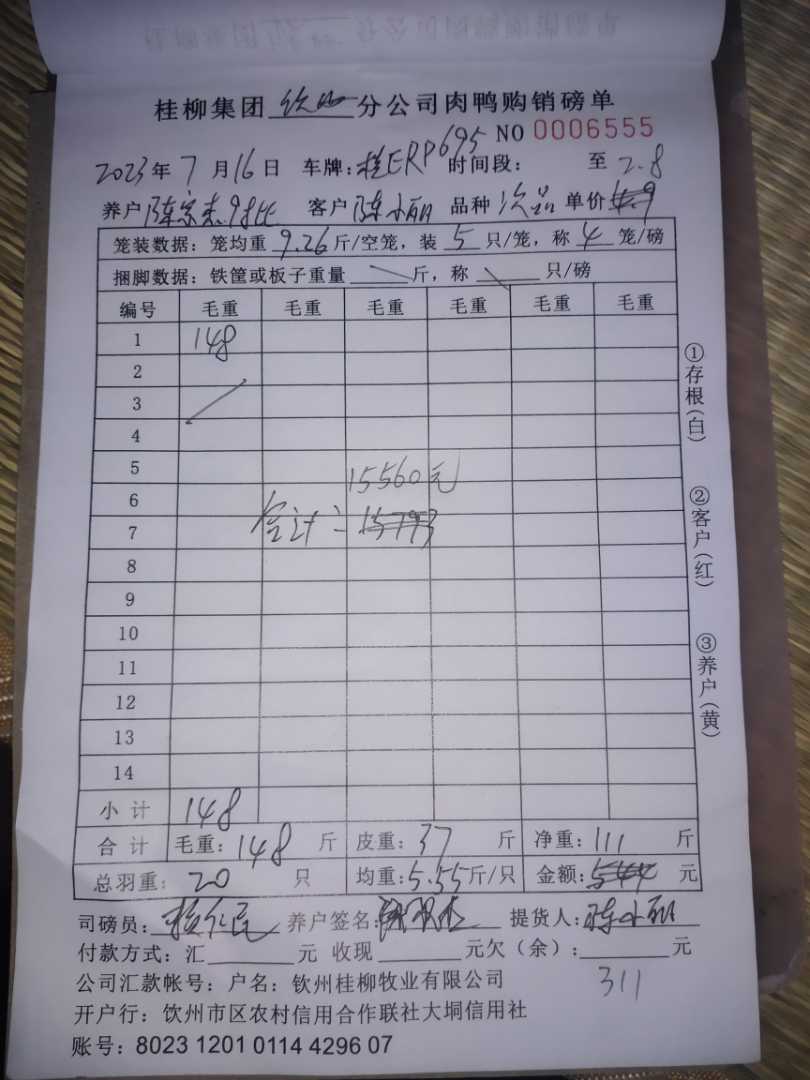 桂柳集团钦州分公司肉鸭购销磅单
NO 0006555
2023年7月16日 车牌:桂ERP695 时间段: 至 2.8
养户 陈宗杰 客户 陈小丽 品种 次品 单价 4.9
笼装数据：笼均重 9.26 斤/空笼，装 5 只/笼，称 4 笼/磅
捆脚数据：铁筐或板子重量 斤，称 只/磅
编号 毛重 毛重 毛重 毛重 毛重 毛重
1 148
2
3
4
5 15560元
6
7 合计: 15793
8
9
10
11
12
13
14
小计 148
合计 毛重: 148 斤 皮重: 37 斤 净重: 111 斤
总羽重: 20 只 均重: 5.55 斤/只 金额: 544 元
司磅员: 养户签名: 提货人: 陈小丽
付款方式: 汇 元 收现 元欠（余）: 元
311
公司汇款帐号：户名：钦州桂柳牧业有限公司
开户行：饮州市区农村信用合作联社大垌信用社
账号：8023 1201 0114 4296 07
①存根(白)
②客户(红)
③养户(黄)